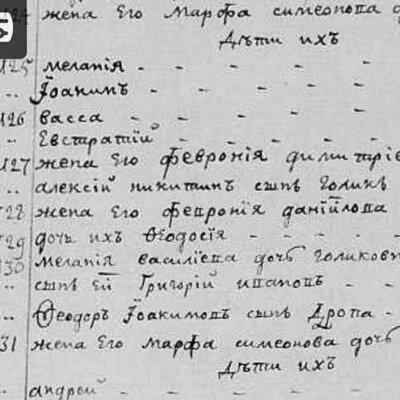 124 жена Его Марѳа симеонова д
Дѣти ихъ
125 меланія - - - - -
.. Іоакимъ - - - - -
126 васса - - - - -
.. Евстратій - - - - -
127 жена Его Феѵронія димитріе
.. алексій никитинъ сынъ Голикъ
128 жена Его Феѵронія даниілова
129 дочь ихъ Ѳеодосія - - - -
130 меланія василіева дочь голиковн
.. сынъ Ей Григорій ивановъ - -
.. Ѳеодоръ Іоакимовъ сынъ Дропа -
131 жена Его марѳа симеонова дочь
Дѣти ихъ
.. андрей - - - - -